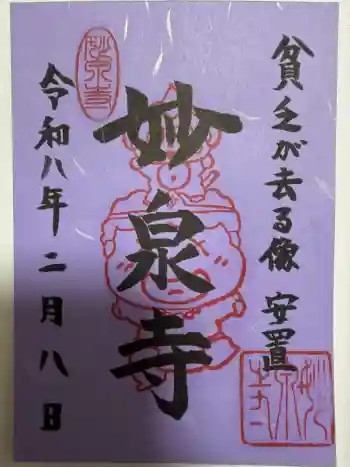 貧乏が去る像 安置
妙泉寺
令和八年二月八日
妙泉寺